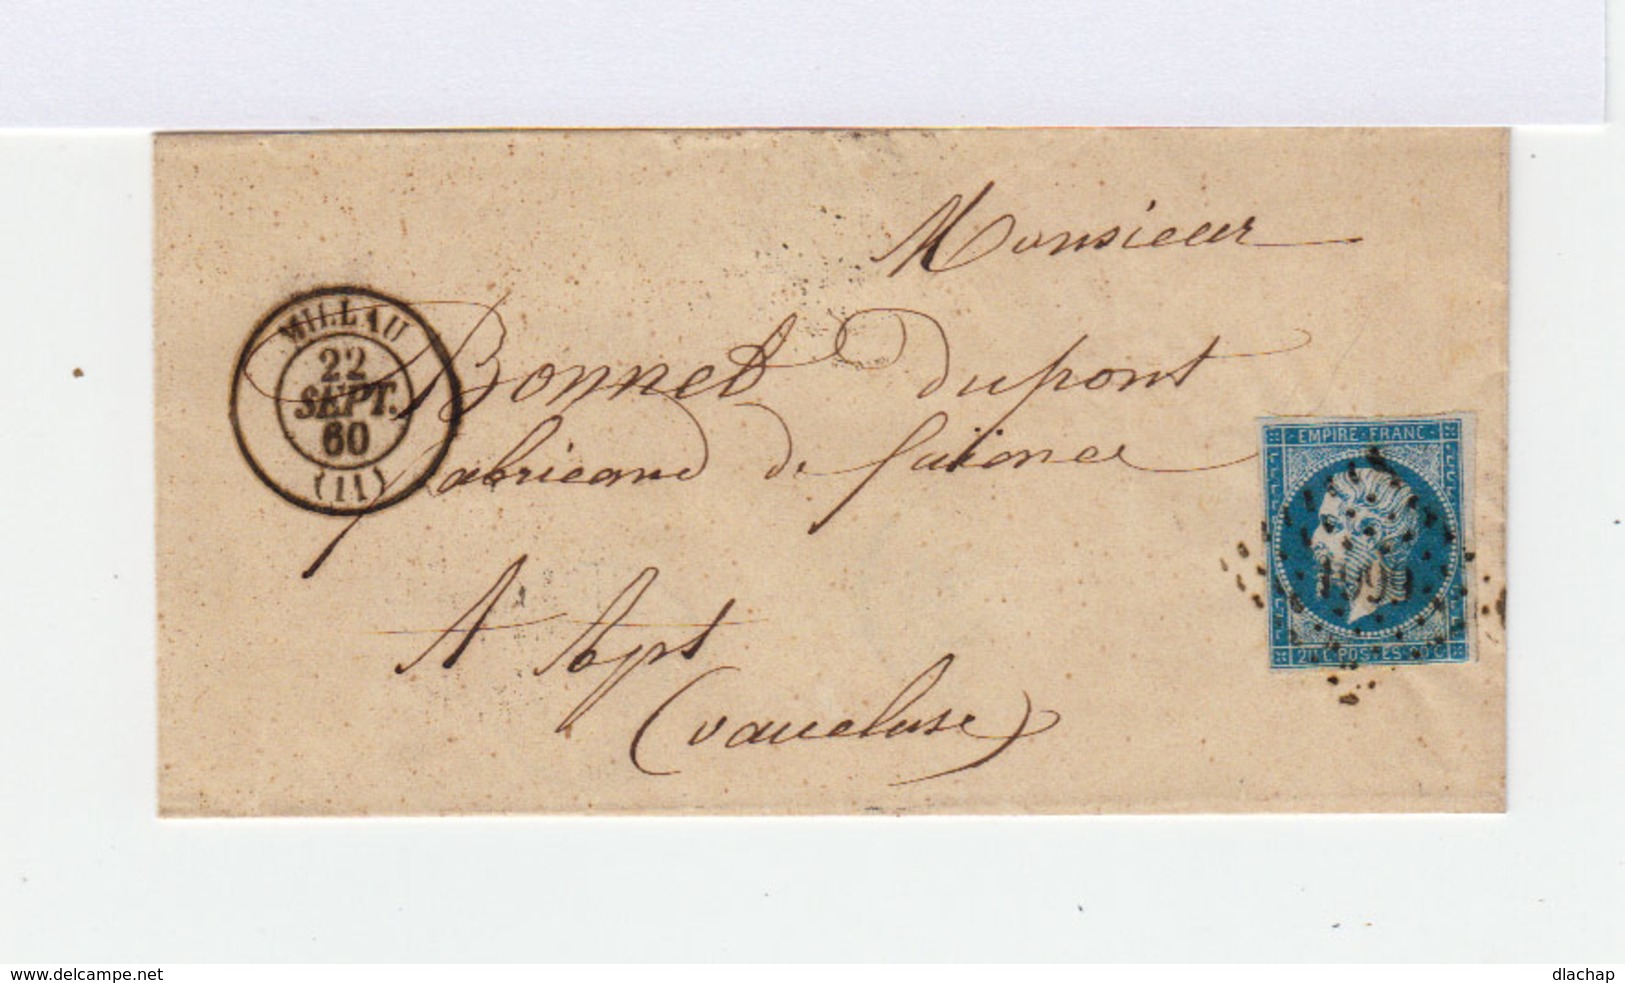 Monsieur
MILLAU
22
SEPT.
60
(11)
Bonnet Dupont
fabricand de faïence
EMPIRE FRANC
1999
20 C POSTES 20 C
A Apt
(vaucluse)
www.delcampe.net
dlachap